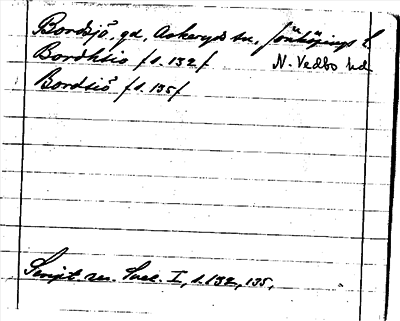 Bordsjö, gd, Askeryds sn, Jönköpings l.
Bordhsio /s. 132/ N. Vedbo hd
Bordsiö /s. 135/
Script. rer. Suec. I, s. 132, 135.